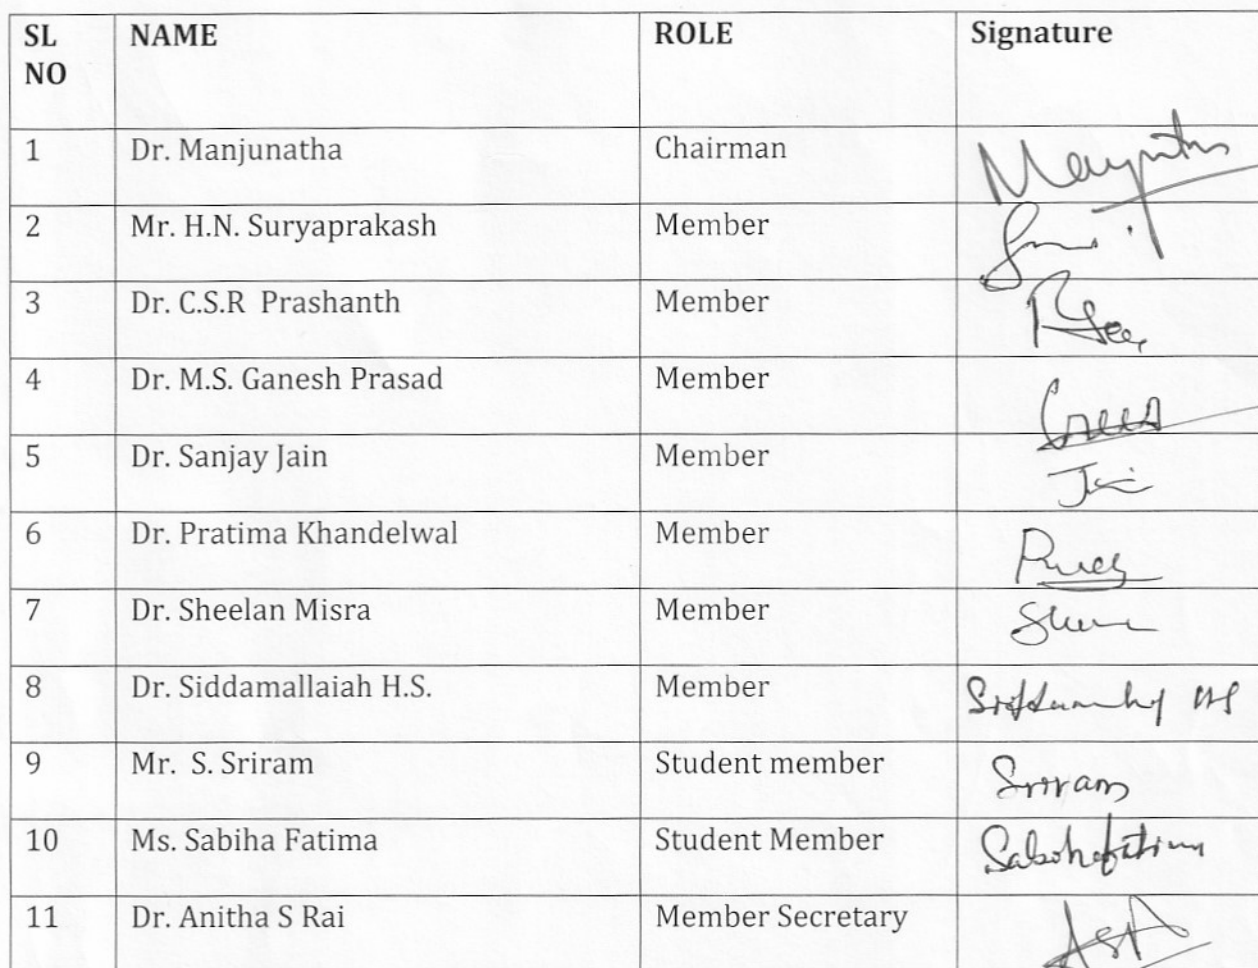 SL NO NAME ROLE Signature
1 Dr. Manjunatha Chairman
2 Mr. H.N. Suryaprakash Member
3 Dr. C.S.R Prashanth Member
4 Dr. M.S. Ganesh Prasad Member
5 Dr. Sanjay Jain Member
6 Dr. Pratima Khandelwal Member
7 Dr. Sheelan Misra Member
8 Dr. Siddamallaiah H.S. Member
9 Mr. S. Sriram Student member Sriram
10 Ms. Sabiha Fatima Student Member
11 Dr. Anitha S Rai Member Secretary